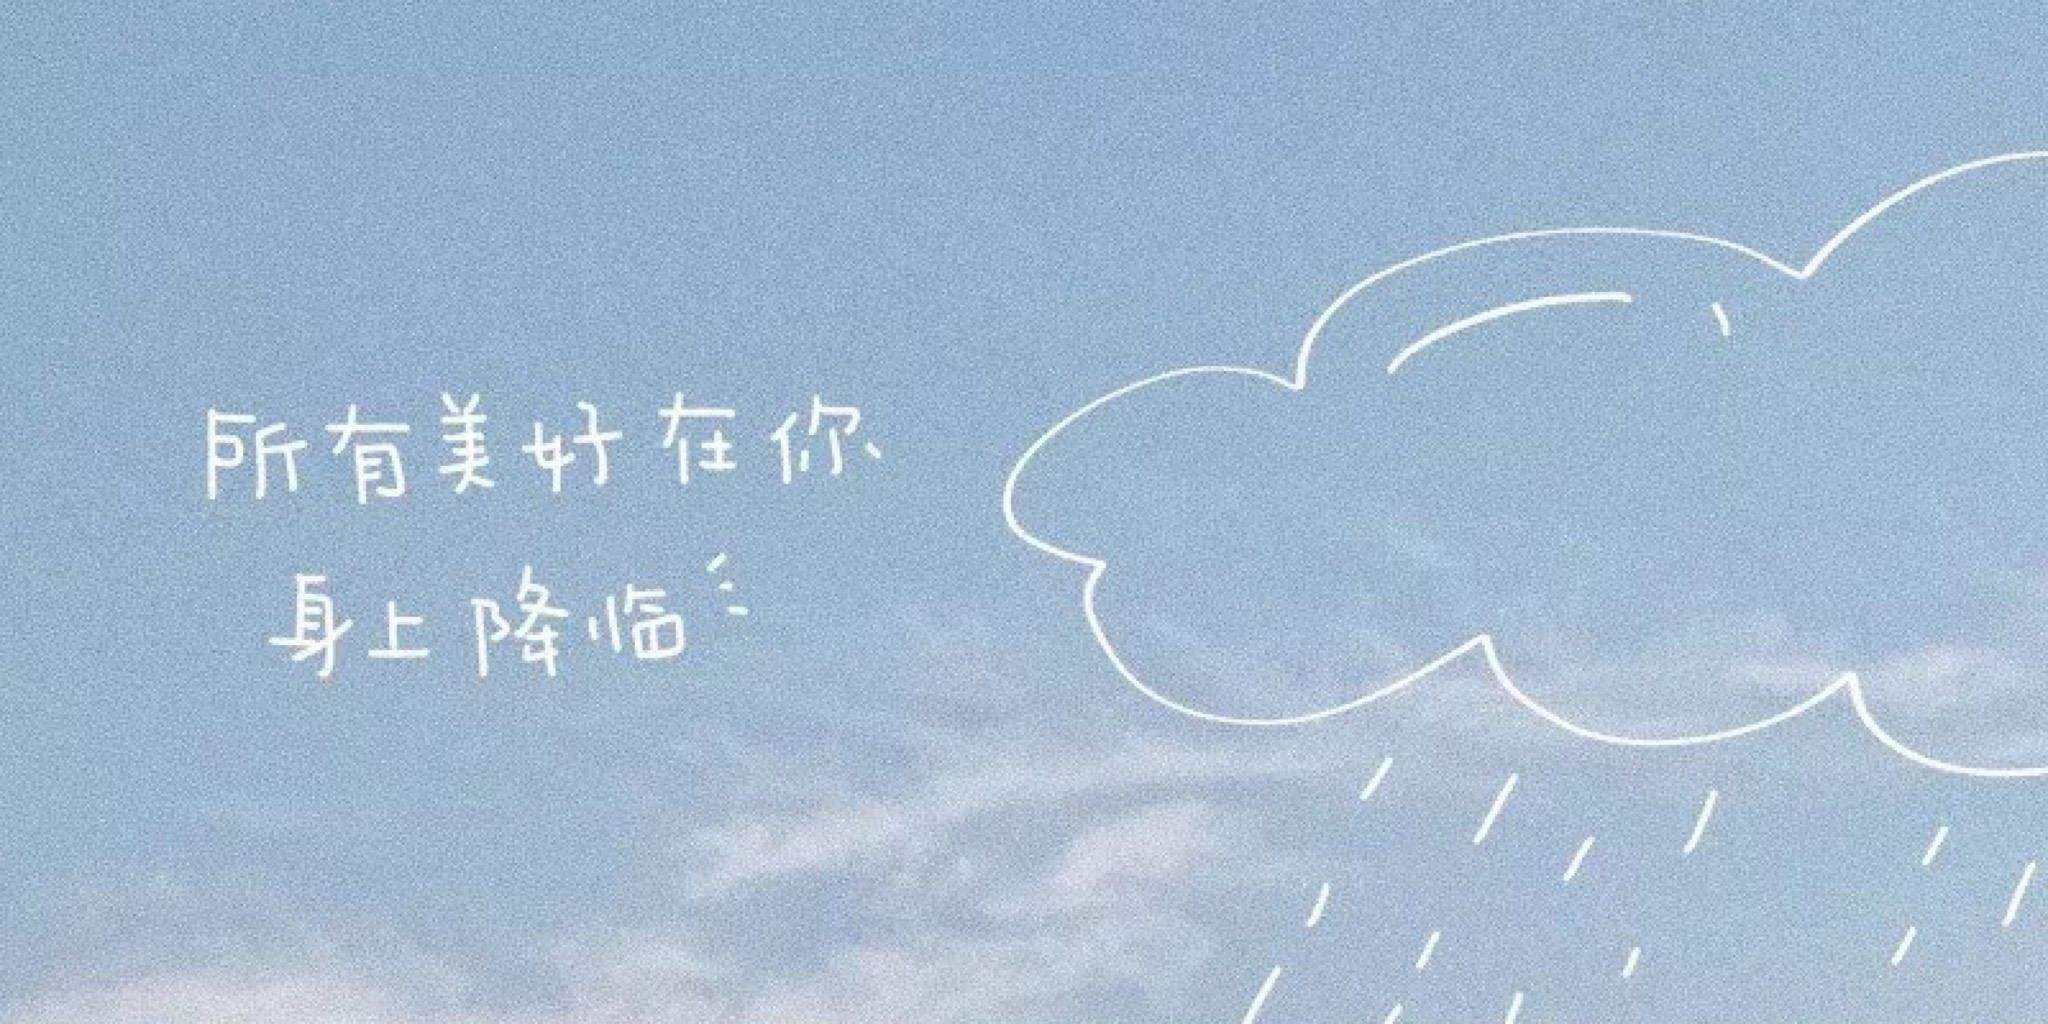 所有美好在你
身上降临